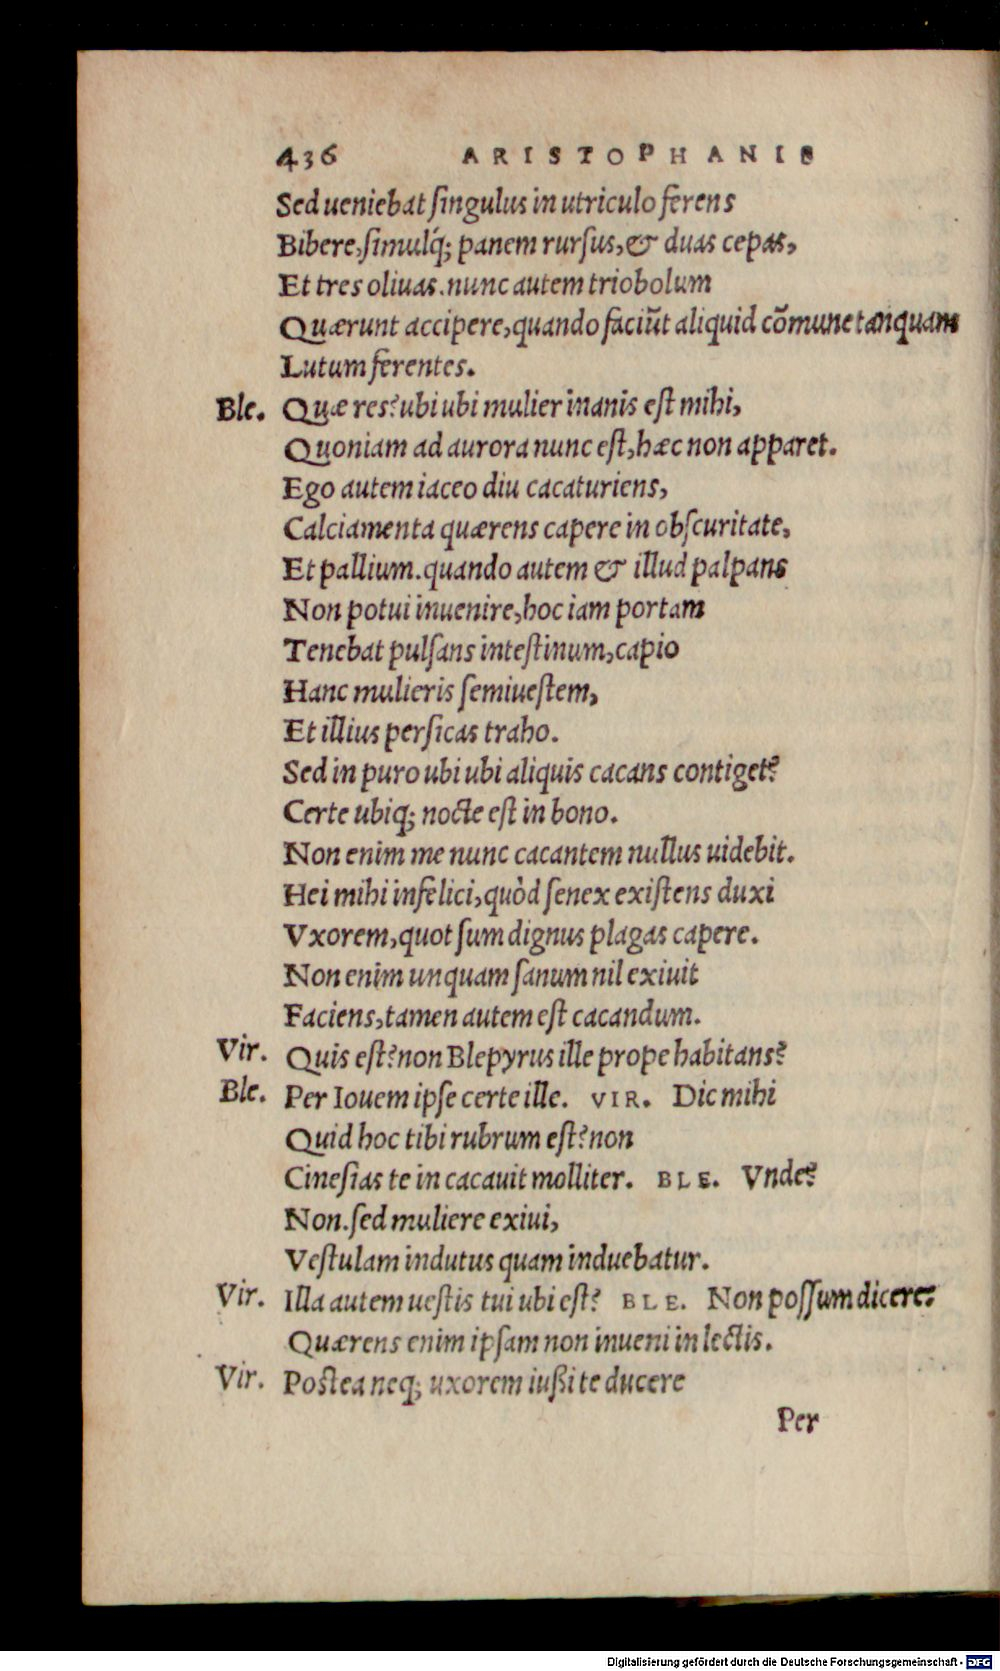 436 ARISTOPHANIS
Sed ueniebat ſingulus in utriculo ferens
Bibere, ſimulq́; panem rurſus, & duas cepas,
Et tres oliuas. nunc autem triobolum
Quærunt accipere, quando faciūt aliquid cōmune tanquam
Lutum ferentes.
Ble. Quæ res? ubi ubi mulier inanis eſt mihi,
Quoniam ad aurora nunc eſt, hæc non apparet.
Ego autem iaceo diu cacaturiens,
Calciamenta quærens capere in obſcuritate,
Et pallium. quando autem & illud palpans
Non potui inuenire, hoc iam portam
Tenebat pulſans inteſtinum, capio
Hanc mulieris ſemiueſtem,
Et illius perſicas traho.
Sed in puro ubi ubi aliquis cacans contiget?
Certe ubiq; nocte eſt in bono.
Non enim me nunc cacantem nullus uidebit.
Hei mihi infelici, quòd ſenex exiſtens duxi
Vxorem, quot ſum dignus plagas capere.
Non enim unquam ſanum nil exiuit
Faciens, tamen autem eſt cacandum.
Vir. Quis eſt? non Blepyrus ille prope habitans?
Ble. Per Iouem ipſe certe ille. VIR. Dic mihi
Quid hoc tibi rubrum eſt? non
Cineſias te in cacauit molliter. BLE. Vnde?
Non. ſed muliere exiui,
Veſtulam indutus quam induebatur.
Vir. Illa autem ueſtis tui ubi eſt? BLE. Non poſſum dicere:
Quærens enim ipſam non inueni in lectis.
Vir. Poſtea neq; uxorem iußi te ducere
Per
Digitalisierung gefördert durch die Deutsche Forschungsgemeinschaft - DFG